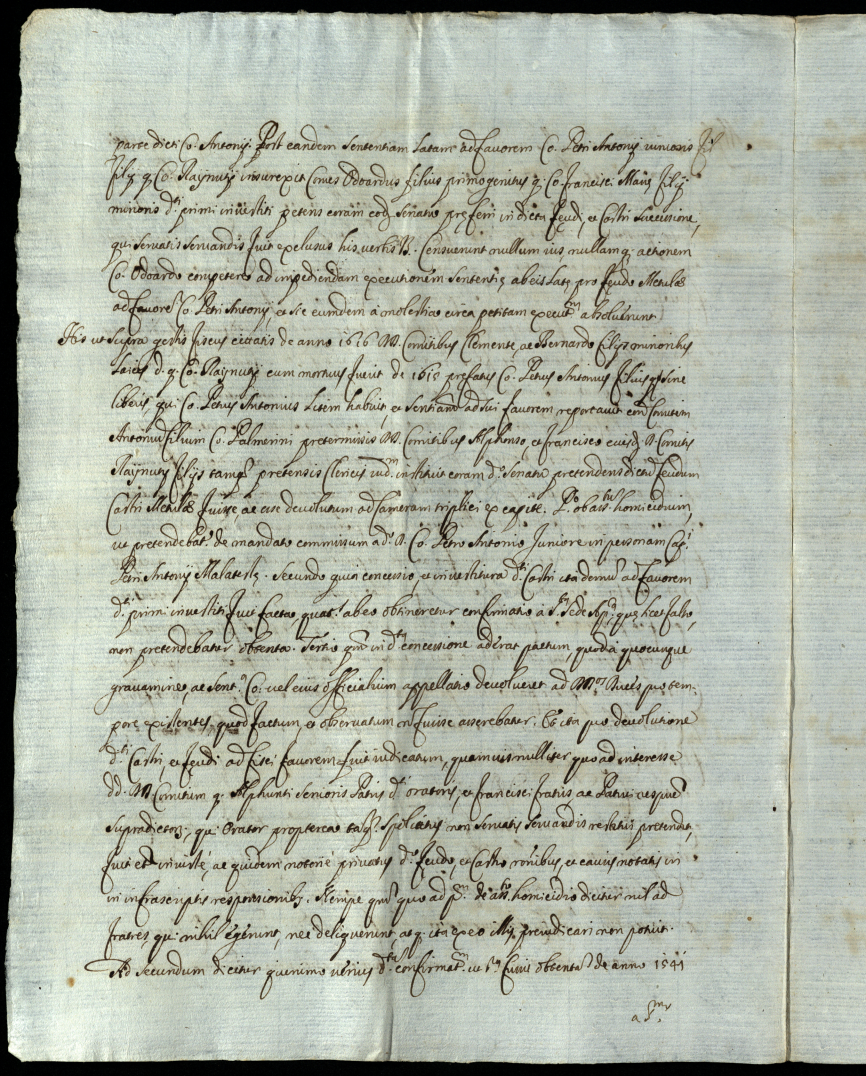 parte dicti Co. Antonij. Post eandem sententiam latam ad favorem Co. Petri Antonij iunioris fil
filij q. Co. Raynutij insurexit Comes Odoardus filius primogenitus q. Co. Francisci Mariȩ filij
minoris d.ti primi investiti petens coram eod. Senatu prȩferri in dicta feudi, et Castri successione,
qui servatis servandis fuit exclusus his verbis V. Censuerunt nullum ius, nullamq. actionem
Co. Odoardo competere ad impediendam executionem sententiȩ ab eis latȩ pro feudo Metulȩ
ad favorē Co. Petri Antonij, et sic eumdem a molestia circa petitam execut.m absolverunt
His ut supra gestis fiscus citatis de anno 1616 Comitibus Clemente, ac Bernardo filijs minoribus
laicis d. q. Co. Raynutij cum mortuus fuerit de 1615 prȩfatus Co. Petrus Antonius filius sine
liberis, qui Co. Petrus Antonius litem habuit, et sententiam ad sui favorem reportavit contra Comitem
Antoniū filium Co. Palmerini pretermissis Comitibus Alphonso, et Francisco eiusd. Comitis
Raynutij filijs tamq. pretensis Clericis iud.m instituit coram d.o Senatu pretendens dictū feudum
Castri Metulȩ fuisse, ac esse devolutum ad Cameram triplici ex capite. P.o ob ass. homicidium,
ut pretendebat.r de mandato commissum a d. Co. Petro Antonio Juniore in personam Cap.
Petri Antonij Malatestȩ. Secundo quia concessio, et investitura d.ti Castri ita demū ad favorem
d.ti primi investiti fuit facta, quat.s ab eo obtineretur confirmatio a S.ta Sede Ap.ca, quȩ licet falso,
non pretendebatur obtenta. Tertio in d.ta concessione aderat pactum, quod a quocunque
gravamine, ac sent. Co. vel eius officialium appellatio devolveret.r ad pro tem-
pore existentes, quod factum, et observatum non fuisse asserebatur. Et ita pro devolutione
d.ti Castri, et feudi ad fisci favorem fuit iudicatum, quamvis nulliter quo ad interesse
dd. Comitum q. Alphunti senioris Patris d.ti oratoris, et Francisci fratris ac Patrui respivē
supradictor., qui Orator propterea spoliatus non servatis servandis pretendit,
fuit et iniustè, ac quidem notoriè privatus d.o feudo, et Castro ronibus, et causis notatis in
in infrascriptis responsionibȝ. Nempe quo ad p.m de ass. homicidio dicitur nil ad
fratres, qui nihil egerunt, nec deliquerunt, atq. ita ex eo illis prȩiudicari non potuit.
Ad secundum dicitur quinimo verius d.tam confirmat. fuisse obtentā de anno 1541
a S.mo